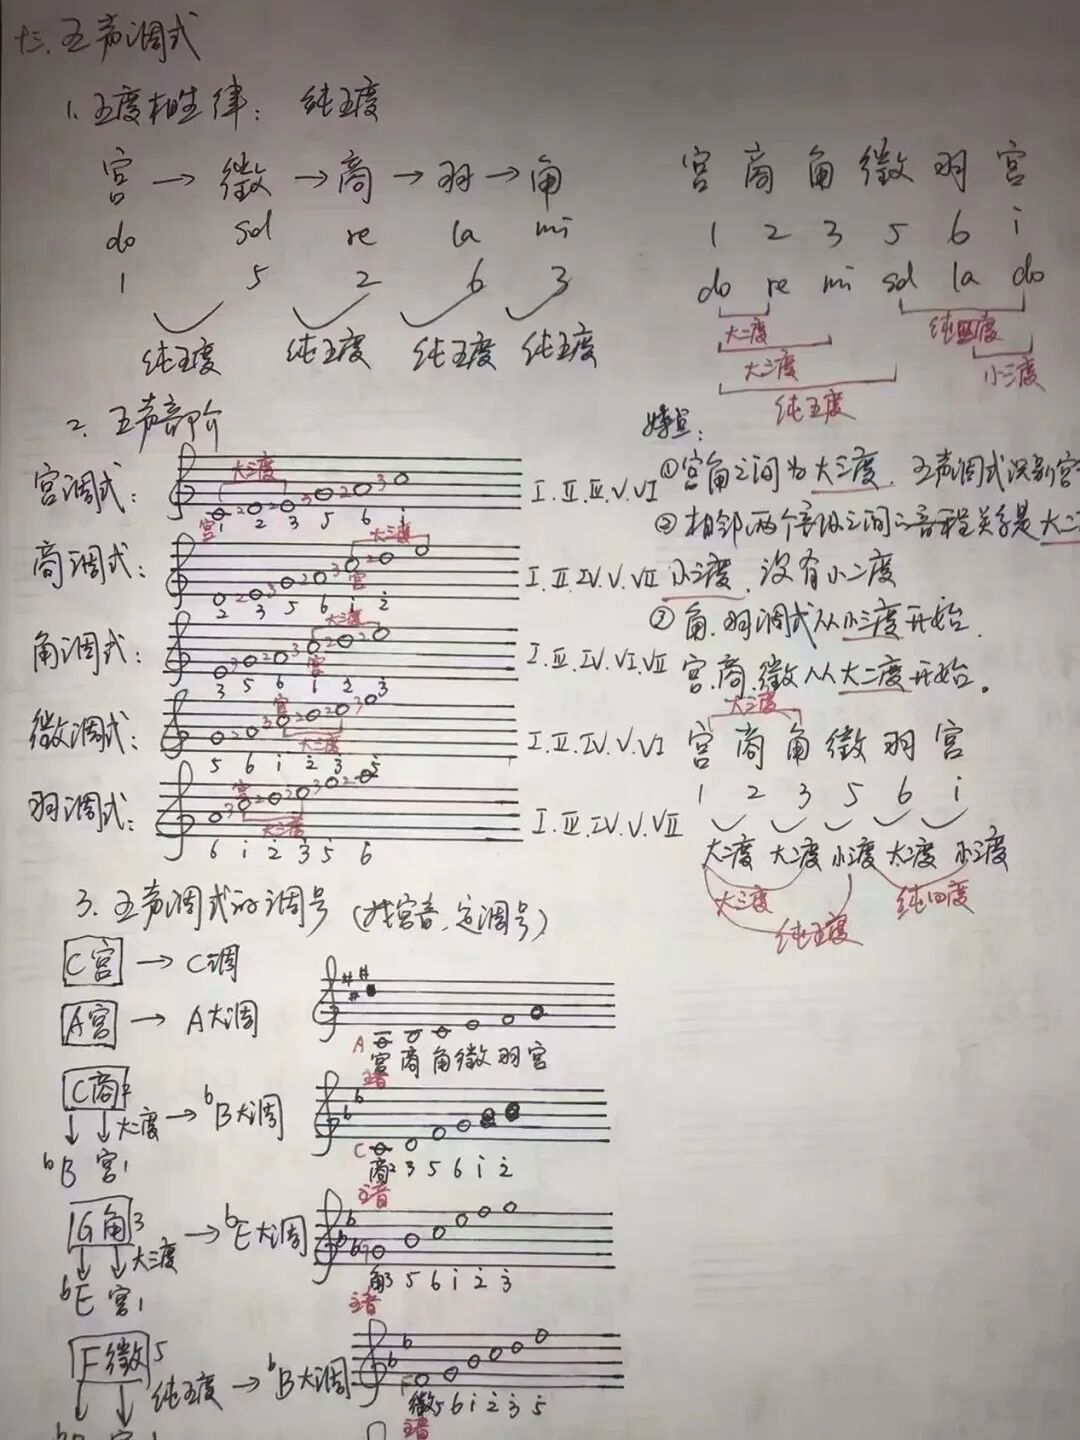 十三. 五声调式
1. 五度相生律: 纯五度
宫 → 徵 → 商 → 羽 → 角
do sol re la mi
1 5 2 6 3
纯五度 纯五度 纯五度 纯五度
宫 商 角 徵 羽 宫
1 2 3 5 6 i
do re mi sol la do
大二度 纯四度
大三度 小三度
纯五度
2. 五声音阶
宫调式: 大三度 I.II.III.V.VI
宫 1 2 3 5 6 i
商调式: 大三度 I.II.IV.V.VII
宫
2 3 5 6 i 2
角调式: 大三度 I.III.IV.VI.VII
宫
3 5 6 1 2 3
徵调式: 宫 大三度 I.II.IV.V.VI
5 6 i 2 3 5
羽调式: 宫 大三度 I.III.IV.V.VII
6 i 2 3 5 6
特点:
①宫角之间为大三度. 五声调式识别宫
②相邻两个音级之间的音程关系是大二
小三度. 没有小二度
③角.羽调式从小三度开始.
宫.商.徵从大二度开始。
大三度
宫 商 角 徵 羽 宫
1 2 3 5 6 i
大二度 大二度 小三度 大二度 小三度
大三度 纯四度
纯五度
3. 五声调式的调号 (找宫音,定调号)
C宫 → C调
A宫 → A大调
A 宫 商 角 徵 羽 宫
主音
C商2 大二度 → bB大调
bB 宫1
C 商2 3 5 6 i 2
主音
G角3 大三度 → bE大调
bE 宫1
G 角3 5 6 i 2 3
主音
F徵5 纯五度 → bB大调
F 徵5 6 i 2 3 5
主音